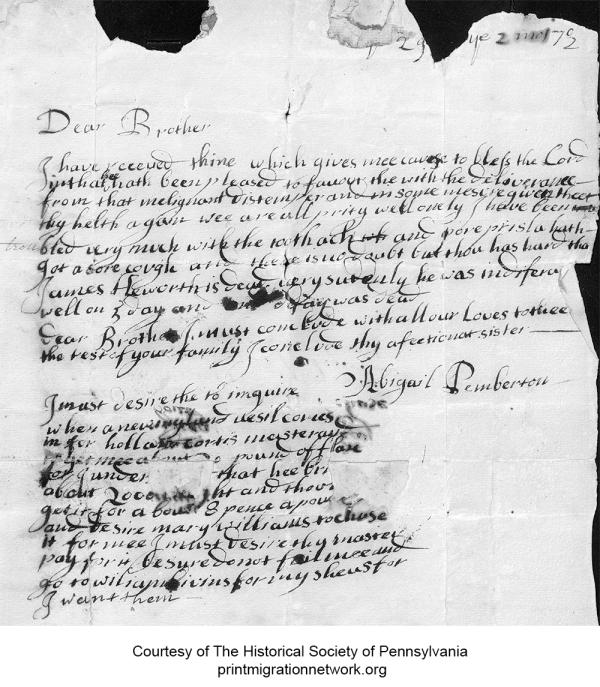 29 ye 2 mo 1702
Dear Brother
I have receved thine which gives mee cause to bless the Lord
in that hee hath been pleased to favour the with the deliverance
from that malignant distemper and in some mesure given thee
thy helth again wee are all prity well only I have been
trou
bled very much with the toothach and pore prisla hath
got a sore cough and there is no doubt but thou has hard tha
James Heworth is dead very sudenly he was indifera
well on 3 day and day was dead
Dear Brother I must conclude with all our Loves to thee
the rest of your family I conclude thy afectionat sister
Abigail Pemberton
I must desire the to inquire
when a vesil comes
in for holland
mee about pound of flax
for I under that hee
about 2000 and thou
get it for a bout 8 pence a pou
and desire mary williams to chuse
it for mee I must desire thy master
pay for it be sure do not fail mee and
go to wiliam bivins for my shews for
I want them
Courtesy of The Historical Society of Pennsylvania
printmigrationnetwork.org